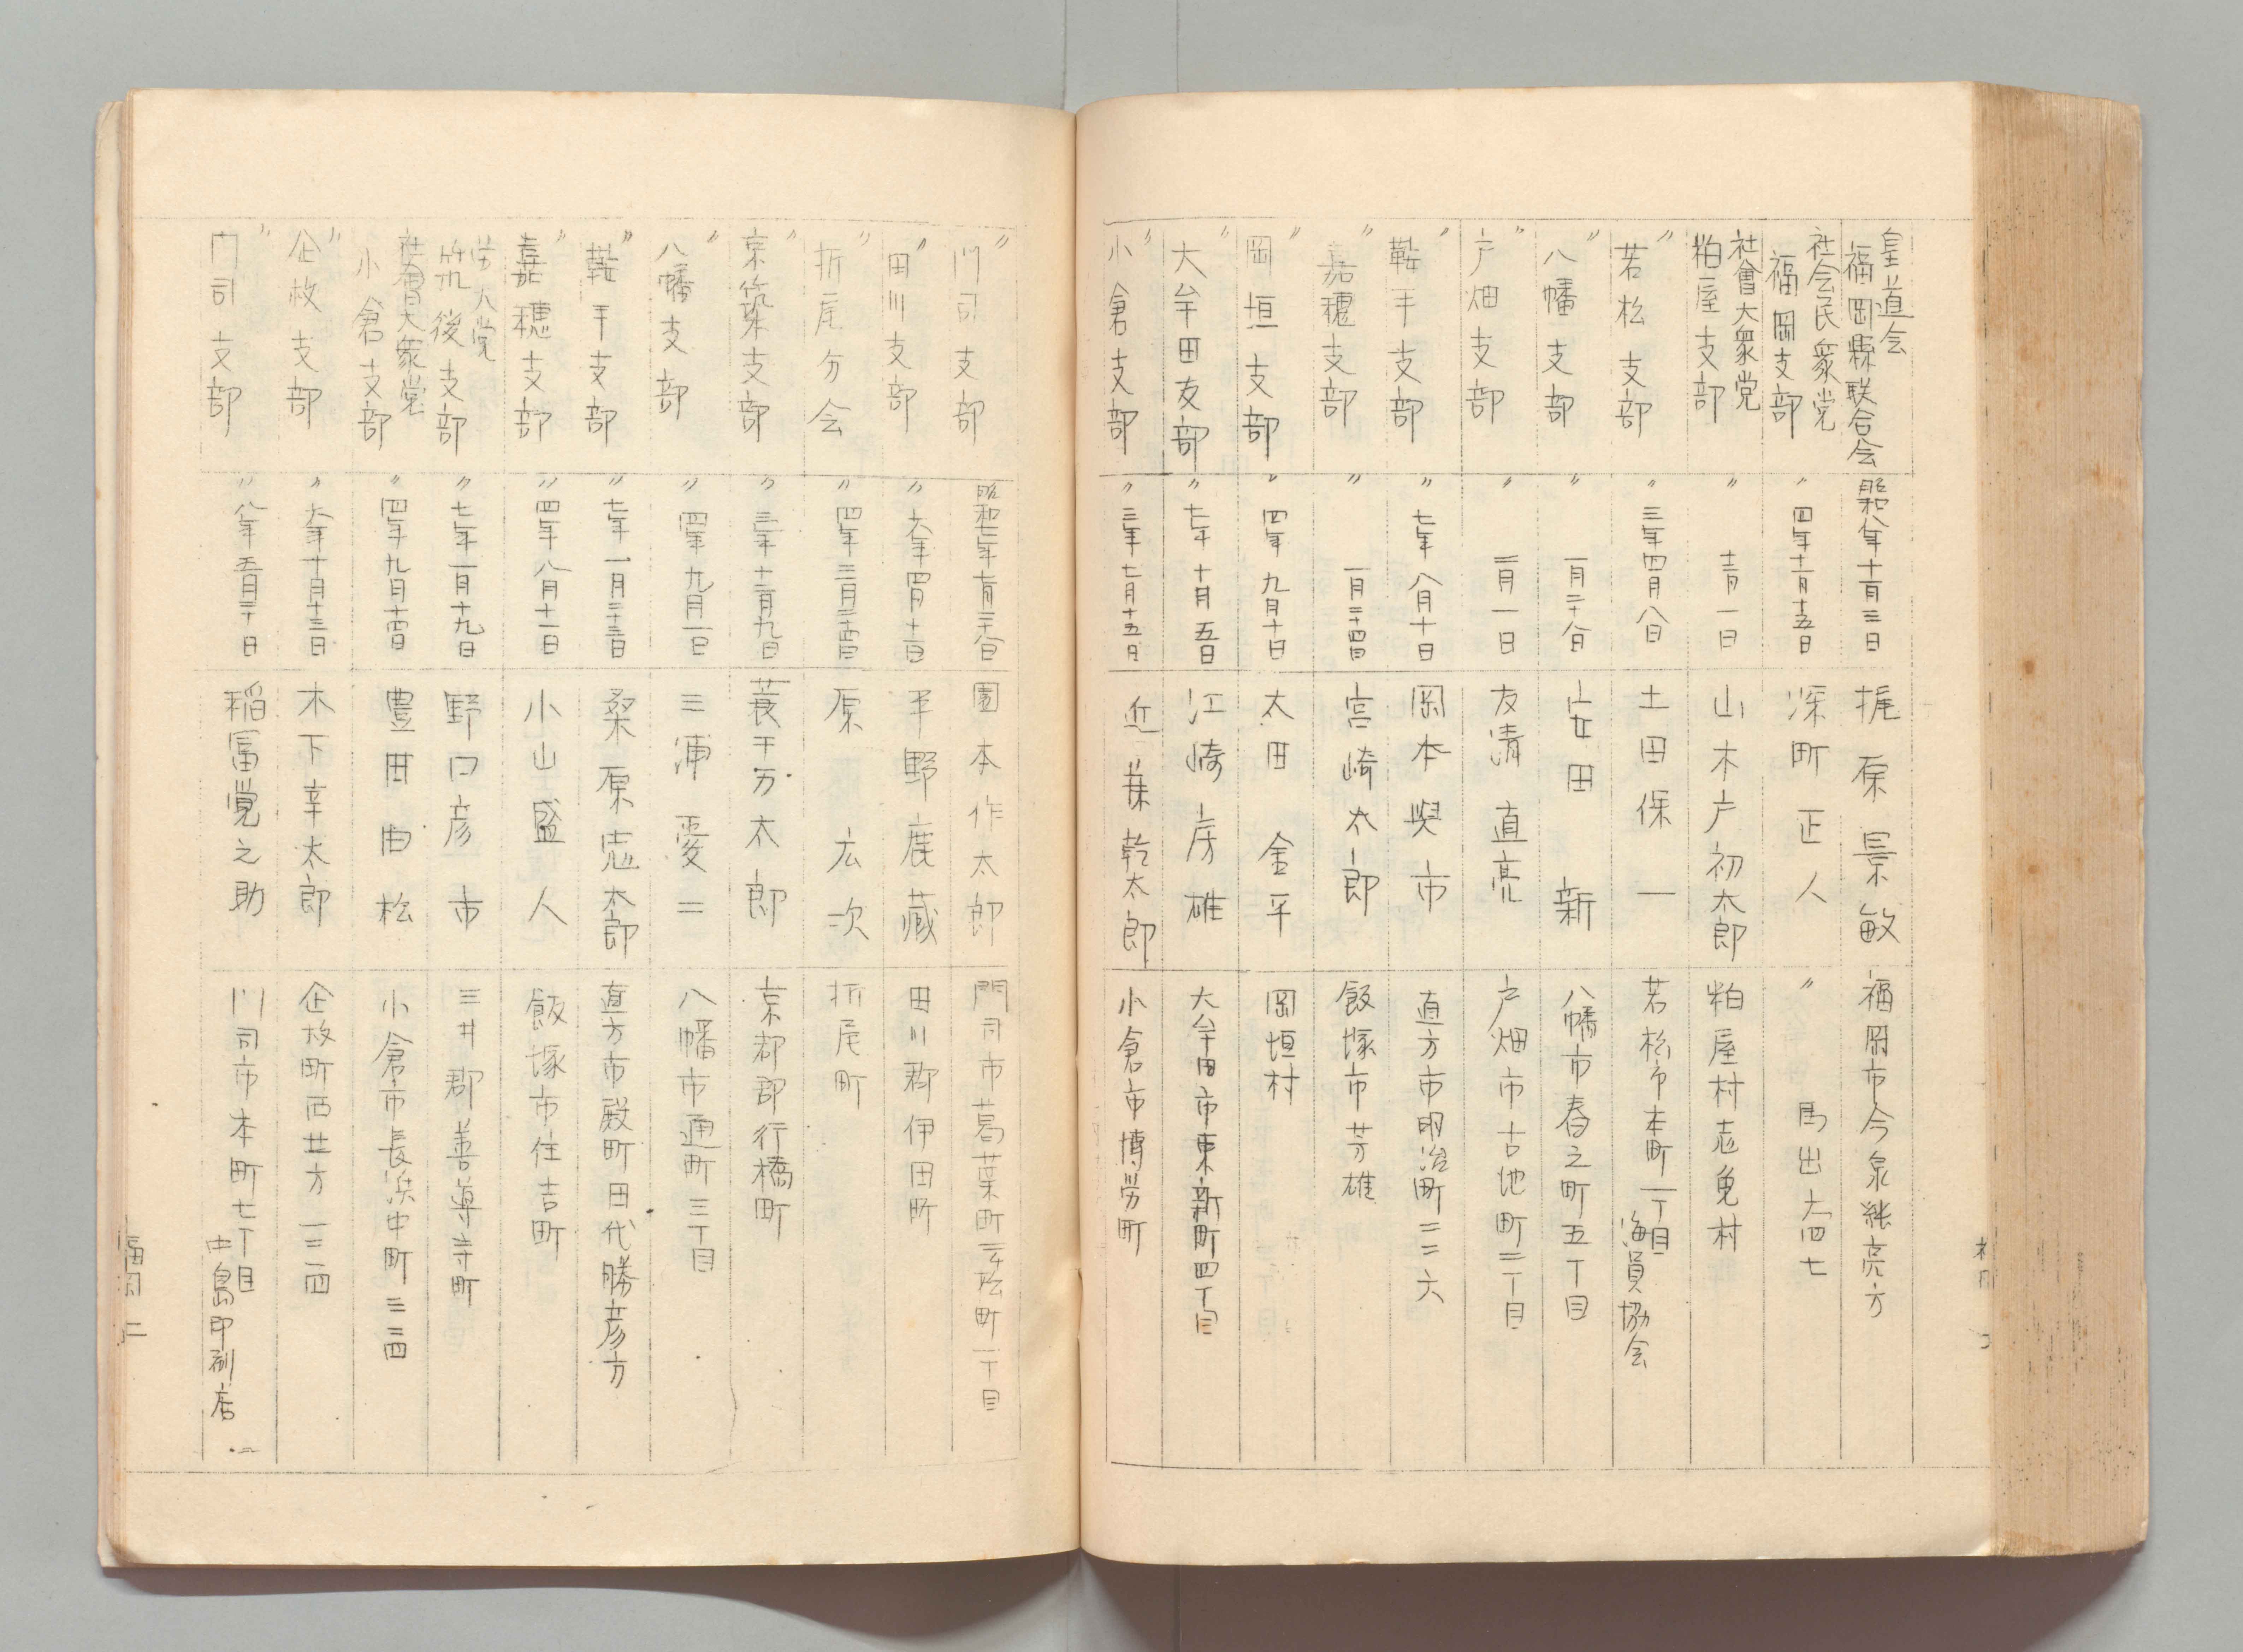 皇道会
福岡縣联合会 昭和八年十一月三日 梶原景敏 福岡市今泉 亮方
社会民衆党
福岡支部 〃四年十一月十五日 深町正人 〃馬出六四七
社會大衆党
粕屋支部 〃 十二月一日 山木戸初太郎 粕屋村志免村
〃若松支部 〃三年四月八日 土田保一 若松市本町一丁目
海員協会
〃八幡支部 〃 一月二十八日 安田新 八幡市春之町五丁目
〃戸畑支部 〃 二月一日 友清直亮 戸畑市古地町二丁目
〃鞍手支部 〃七年八月十日 岡本與市 直方市明治町三二六
〃嘉穂支部 〃 一月二十四日 宮崎太郎 飯塚市芳雄
〃岡垣支部 〃四年九月十日 太田金平 岡垣村
〃大牟田支部 〃七年十月五日 江崎房雄 大牟田市東新町四丁目
〃小倉支部 〃三年七月十五日 近藤乾太郎 小倉市博労町
〃門司支部 昭和七年 月二十八日 園本作太郎 門司市葛葉町 松町一丁目
〃田川支部 〃六年四月十二日 平野鹿藏 田川郡伊田町
〃折尾分会 〃四年三月二十四日 原広次 折尾町
〃京築支部 〃三年十二月九日 蓑干万太郎 京都郡行橋町
〃八幡支部 〃四年九月一日 三浦愛二 八幡市通町三丁目
〃鞍手支部 〃七年一月二十三日 桑原志太郎 直方市殿町田代勝彦方
〃嘉穂支部 〃四年八月十一日 小山盛人 飯塚市住吉町
労大党
筑後支部 〃七年一月十九日 野口彦市 三井郡善導寺町
社會大衆党
小倉支部 〃四年九月十四日 豊田由松 小倉市長浜中町三三四
〃企救支部 〃六年十月十三日 木下幸太郎 企救町西廿方一三四
〃門司支部 〃八年五月二十日 稲冨覚之助 門司市本町七丁目
中島印刷店
福岡 二